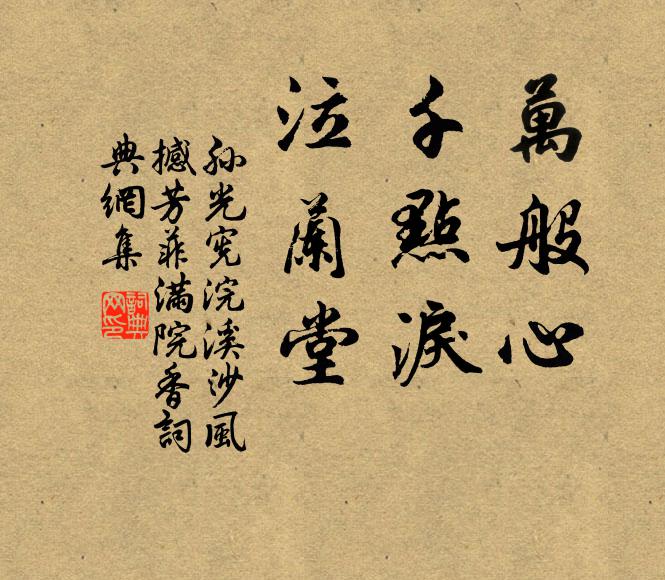 萬般心
千點淚
泣蘭堂
孙光宪浣溪沙風
撼芳菲满院香詞
典網集
詞典
网印